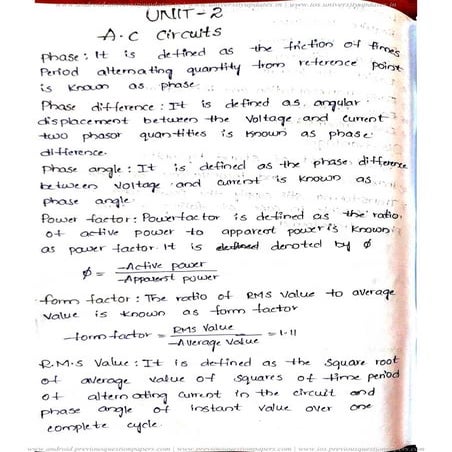 www.android.previousquestionpapers.com | www.previousquestionpapers.com | www.ios.previousquestionpapers.com
UNIT-2
A.C Circuits
Phase : It is defined as the friction of times
Period alternating quantity from reference point
is known as phase.
Phase difference : It is defined as angular
displacement between the voltage and current
two phasor quantities is known as phase
difference.
Phase angle : It is defined as the phase difference
between voltage and current is known as
phase angle.
Power factor : Power factor is defined as the ratio
of active power to apparent power is known
as power factor. It is denoted by ϕ
ϕ = Active power
Apparent power
form factor : The ratio of RMS value to average
value is known as form factor
form factor = RMS Value = 1.11
Average Value
R.M.S Value : It is defined as the square root
of average value of squares of time period
of alternating current in the circuit and
phase angle of instant value over one
complete cycle.
www.android.previousquestionpapers.com | www.previousquestionpapers.com | www.ios.previousquestionpapers.com